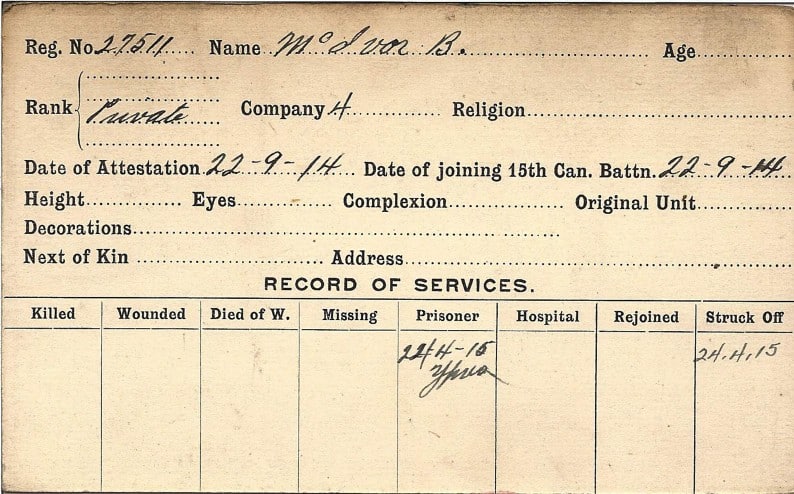 Reg. No. 27511 Name McIvor B. Age
Rank Private Company 4 Religion
Date of Attestation 22-9-14 Date of joining 15th Can. Battn. 22-9-14
Height Eyes Complexion Original Unit
Decorations
Next of Kin Address
RECORD OF SERVICES.
Killed Wounded Died of W. Missing Prisoner Hospital Rejoined Struck Off
22-4-15 24.4.15
Ypres